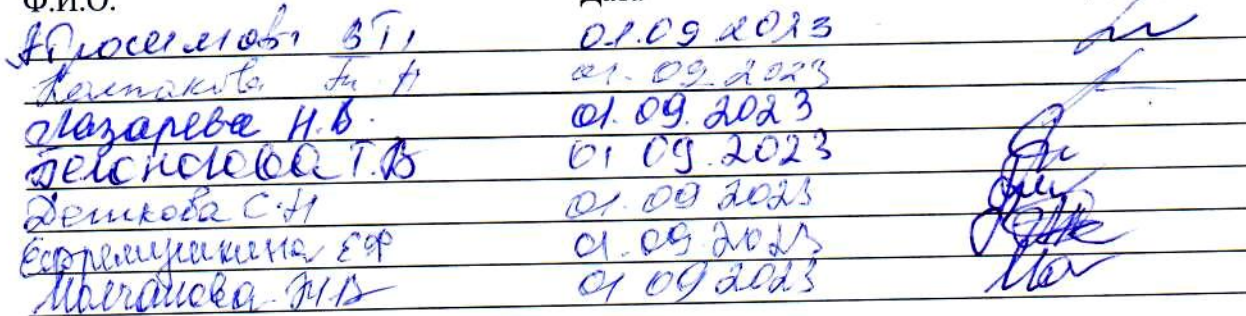 Ф.И.О. Дата
01.09 2023
Колпакова 01.09.2023
Лазарева Н.В. 01.09.2023
Белоногова Т.В 01 09.2023
Дешкова С.Н 01.09 2023
Ефремушкина ЕФ 01.09.2023
Молчанова 01 09 2023